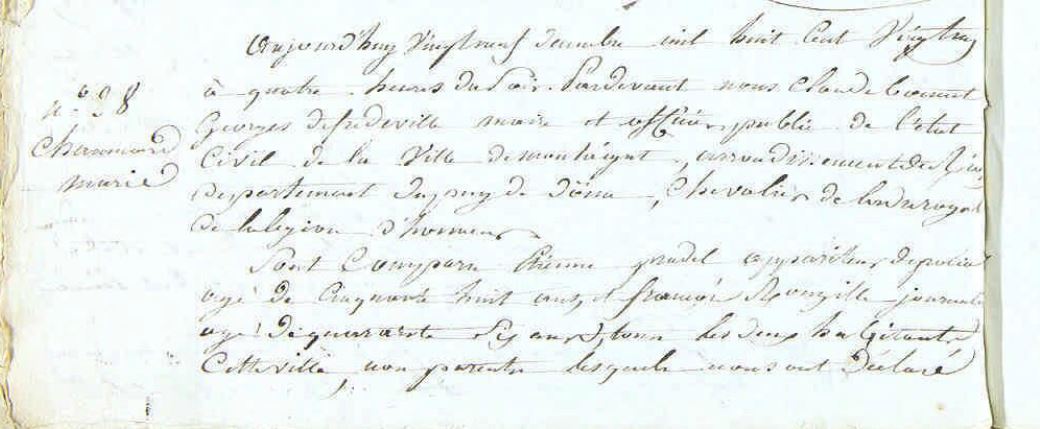 aujourd'huy Vingt neuf decembre mil huit Cent Vingt
à quatre heures du Soir Pardevant nous Claude
n.o 98
Georges defredeville maire et officier public de l'état
Chaumard
Civil de la Ville de montaigut, arrondissement de
marie
departement du puy de dôme, Chevalier de l'ordre royal
de la légion d'honneur
Sont Comparu Etienne pradel appariteur de police
agé de Cinquante huit ans, et françois journalier
agé de quarante Six ans, tous les deux habitants
Cette ville, non parents lesquels nous ont Déclaré